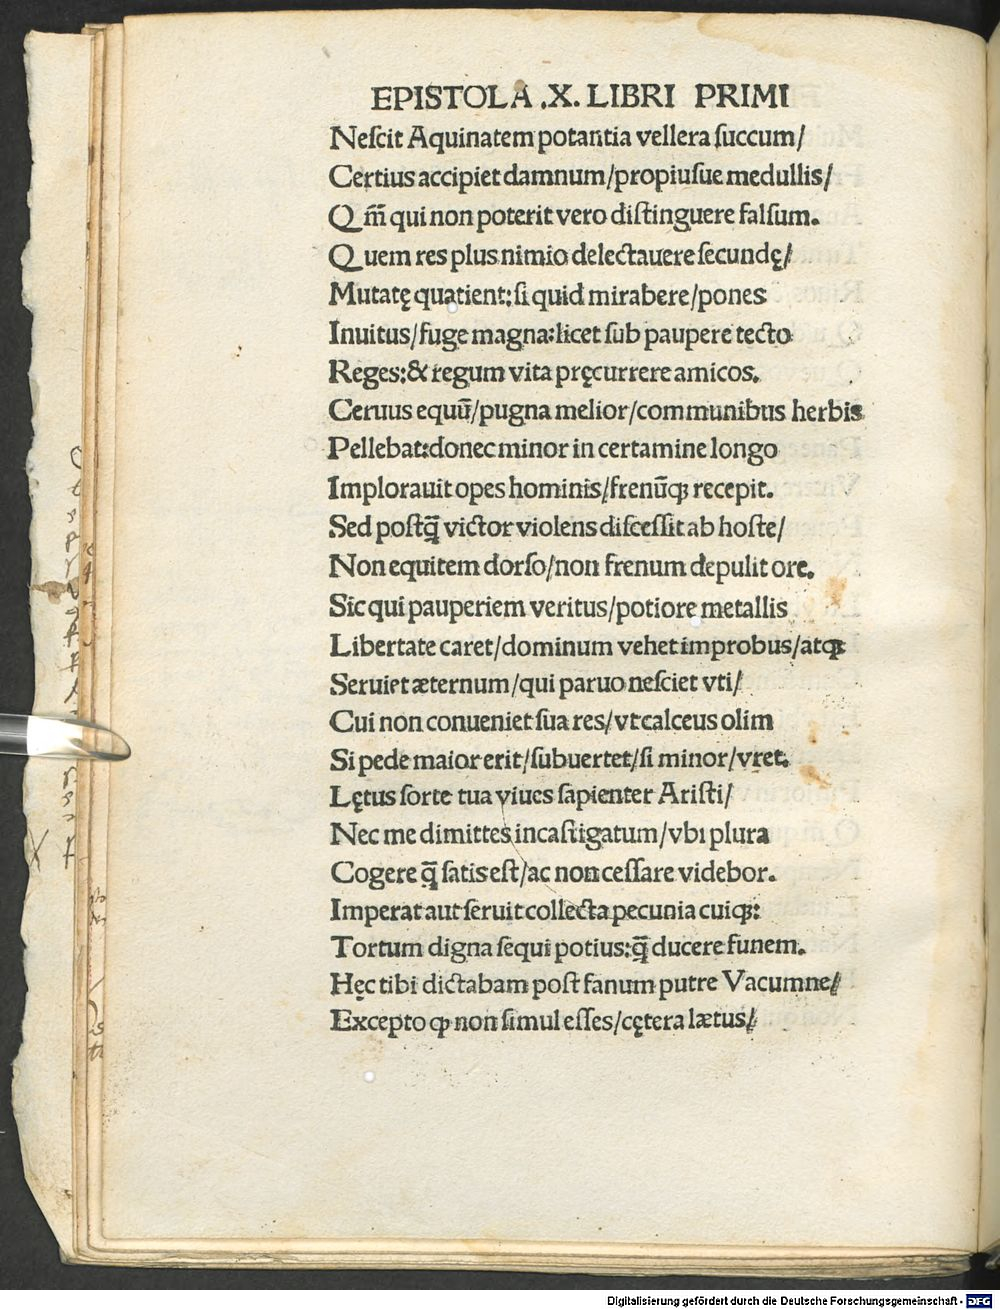 EPISTOLA .X. LIBRI PRIMI
Neſcit Aquinatem potantia vellera ſuccum/
Certius accipiet damnum/propiuſue medullis/
Qm̄ qui non poterit vero diſtinguere falſum.
Quem res plus nimio delectauere ſecundę/
Mutatę quatient: ſi quid mirabere/pones
Inuitus/fuge magna: licet ſub paupere tecto
Reges: & regum vita pręcurrere amicos.
Ceruus equū/pugna melior/communibus herbis
Pellebat: donec minor in certamine longo
Implorauit opes hominis/frenūqꝫ recepit.
Sed poſtq̄ victor violens diſceſſit ab hoſte/
Non equitem dorſo/non frenum depulit ore.
Sic qui pauperiem veritus/potiore metallis
Libertate caret/dominum vehet improbus/atqꝫ
Seruiet æternum/qui paruo neſciet vti/
Cui non conueniet ſua res/vt calceus olim
Si pede maior erit/ſubuertet/ſi minor/vret.
Lętus ſorte tua viues ſapienter Ariſti/
Nec me dimittes incaſtigatum/vbi plura
Cogere q̄ ſatis eſt/ac non ceſſare videbor.
Imperat aut ſeruit collecta pecunia cuiqꝫ:
Tortum digna ſequi potius: q̄ ducere funem.
Hęc tibi dictabam poſt fanum putre Vacumne/
Excepto ꝙ non simul eſſes/cętera lætus/
Digitalisierung gefördert durch die Deutsche Forschungsgemeinschaft - DFG